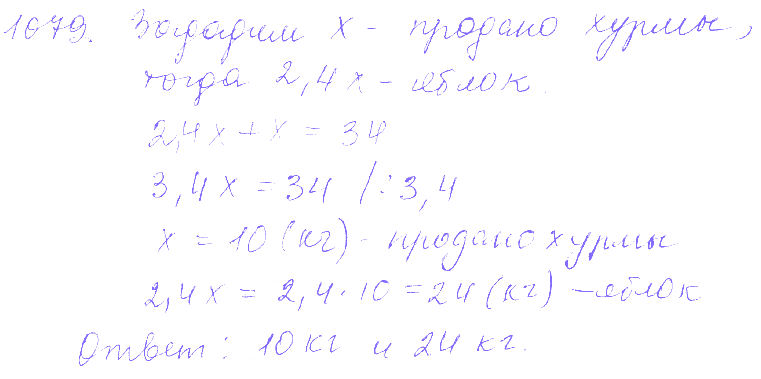 1079. Зададим x - продано хурмы,
тогда 2,4x - яблок.
2,4x + x = 34
3,4x = 34 /:3,4
x = 10 (кг) - продано хурмы
2,4x = 2,4·10 = 24 (кг) - яблок
Ответ: 10 кг и 24 кг.